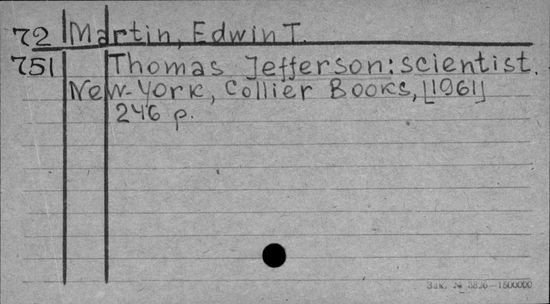 72 Martin, Edwin T.
751 Thomas Jefferson: scientist.
New-York, Collier Books, [1961]
246 p.
Зак. № 3826-1500000